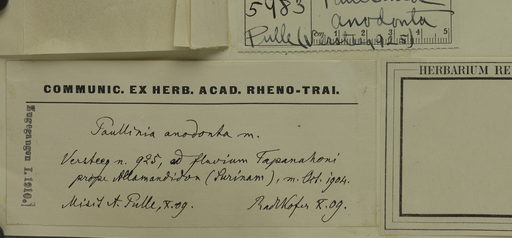 5983
anodonta
Pulle (Versteeg 925)
1 2 3 4 5
COMMUNIC. EX HERB. ACAD. RHENO-TRAI.
HERBARIUM RE
Eingegangen I. 1910.
Paullinia anodonta m.
Versteeg n. 925, ad flavium Tapanahoni
prope Allamandidon (Surinam), m. Oct. 1904.
Misit A. Pulle, X.09. Radlkofer X.09.